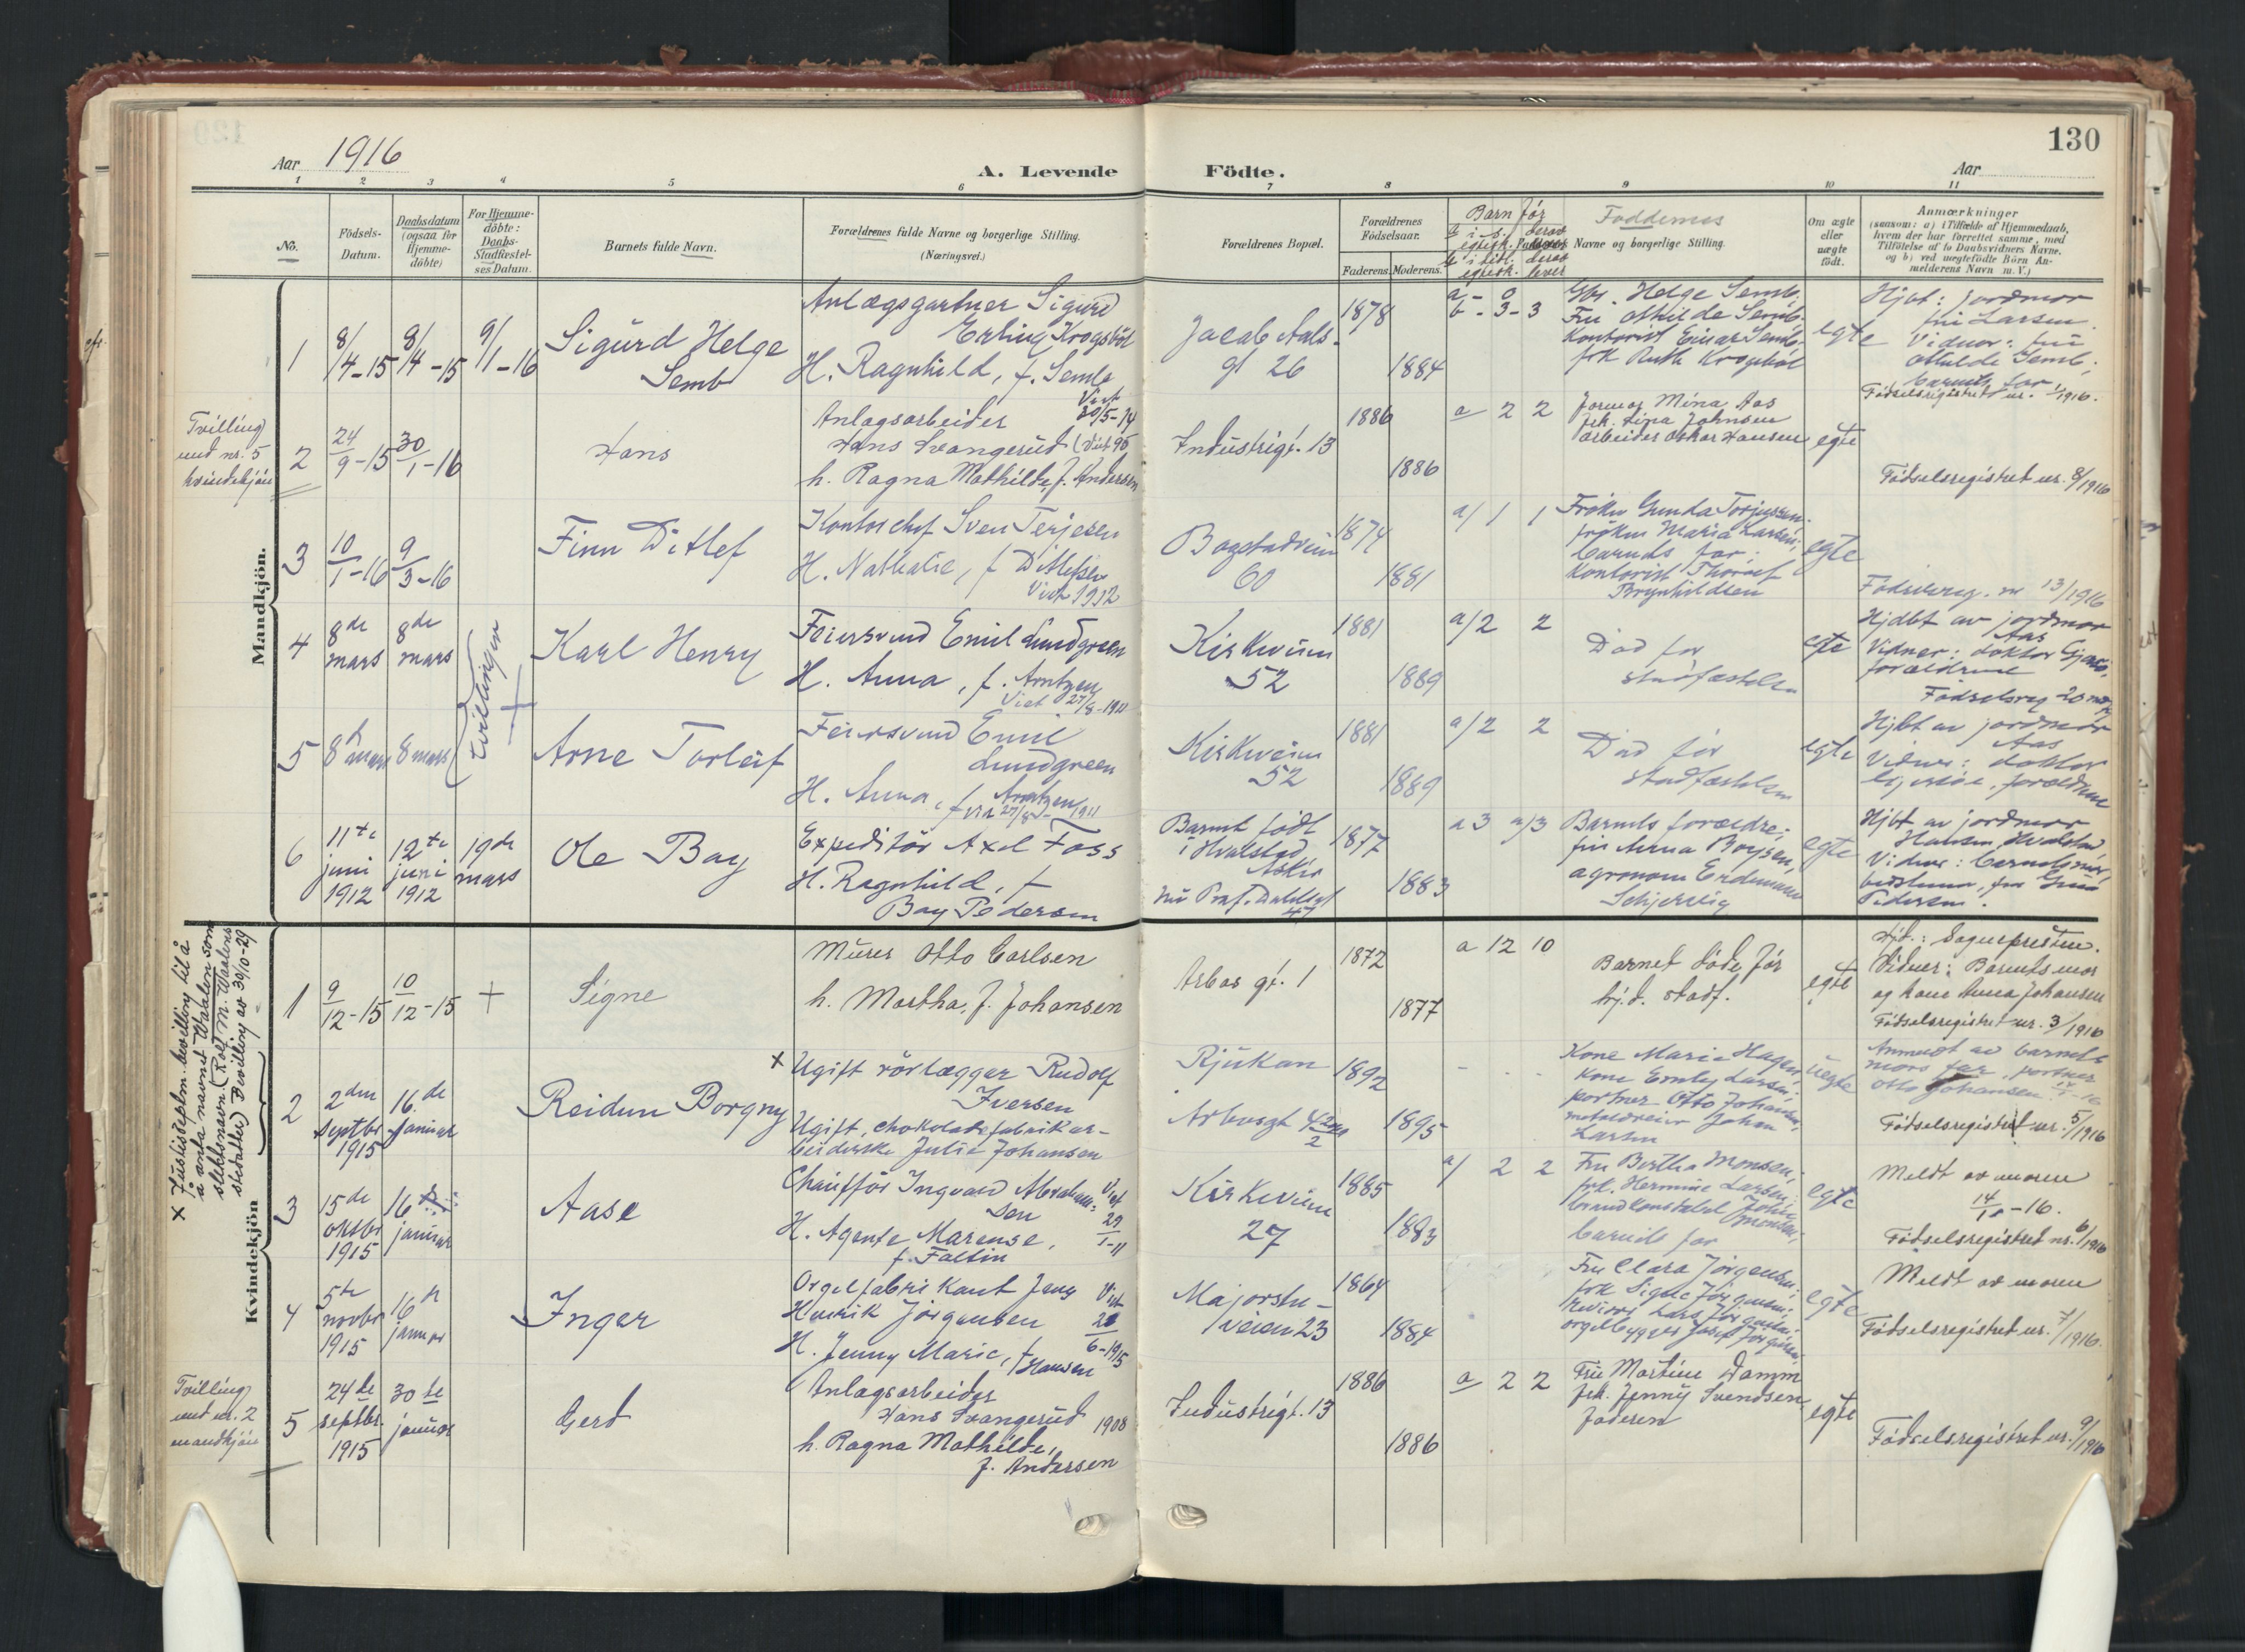 130
Aar 1916
A. Levende Födte.
Aar
1 2 3 4 5 6 7 8 9 10 11
No.
Födsels-
Datum.
Daabsdatum
(ogsaa for
Hjemme-
döbte)
For Hjemme-
döbte:
Daabs-
Stadfæstel-
ses Datum.
Barnets fulde Navn.
Forældrenes fulde Navne og borgerlige Stilling.
(Næringsvei.)
Forældrenes Bopæl.
Forældrenes
Födselsaar.
Faderens. Moderens.
Barn før
Faddernes
Navne og borgerlige Stilling.
Om ægte
eller
uægte
födt.
Anmærkninger
(saasom: a) i Tilfælde af Hjemmedaab,
hvem der har forrettet samme, med
Tilföielse af to Daabsvidners Navne,
og b) ved uægtefödte Börn An-
melderens Navn m. V.)
Mandkjön.
1
8/4-15
8/4-15
9/1-16
Sigurd Helge
Semb
Anlægsgartner Sigurd
Erling Krogsböl
H. Ragnhild, f. Semb
Jacob Aals
gt 26
1878
1884
a - 0
b - 3 - 3
Gbr. Helge Semb,
Fru Othilde Semb
Kontorist Einar Semb
frk Ruth Krogsböl
egte
Hjbt: jordmor
fru Larsen.
Vidner: fru
Othilde Semb;
barnets far.
Födselsregistret nr. 1/1916.
Tvilling
med nr. 5
kvindekjøn
2
24/9-15
30/1-16
Hans
Anlægsarbeider
Hans Svangerud
h. Ragna Mathilde, f. Andersen
Industrigt. 13
1886
1886
a 2 2
Jormor Mina Aas
frk. Lina Johnsen
arbeider Oskar Hansen
egte
Fødselsregistret nr. 8/1916
3
10/1-16
9/3-16
Finn Ditlef
Kontorchef Sven Terjesen
H. Nathalie, f Ditlefsen
Viet 1912
Bogstadveien
60
1874
1881
a/ 1 1
Fröken Gunda Torjussen;
fröken Maria Larsen;
barnets far;
Kontorist Thoralf
Brynhildsen
egte
Födselsreg. nr 13/1916
4
8de
mars
8de
mars
tvillinger
Karl Henry
Feiersvend Emil Lundgreen
H. Anna, f. Arntzen
Viet 27/8-1911
Kirkeveien
52
1881
1889
a/2 2
Död før
stadfæstelsen
egte
Hjdbt av jordmor
Aas
Vidner: doktor
forældrene
Fødselsreg 20
5
8 mars
8 mars
Arne Torleif
Feiersvend Emil
Lundgreen
H. Anna, f. Arntzen
Viet 27/8-1911
Kirkeveien
52
1881
1889
a/2 2
Död før
stadfæstelsen
egte
Hjbt av jordmor
Aas
Vidner: doktor
forældrene
6
11te
juni
1912
12te
juni
1912
19de
mars
Ole Bay
Expeditör Axel Foss
H. Ragnhild, f
Bay Pedersen
Barnet födt
i Hvalstad
Asker
nu Prof. Dahlsgt
47
1877
1883
a 3 a/3
Barnets forældre;
fru Anna Boysen,
agronom Erdmann
Schjervig
egte
Hjbt av jordmor
Hansen, Hvalstad
Vidner: barnets mor,
Pedersen.
Kvindekjön
x Justisdeptm. bevilling til å
å anta navnet Waalen som
slektsnavn. (Rolf M. Waalens
stedatter) Bevilling av 30/10-29
1
9/12-15
10/12-15
+
Signe
Murer Otto Carlsen
h. Martha, f. Johansen
Arbos gt. 1
1872
1877
a 12 10
Barnet døde før
hj.d. stadf.
egte
Hjd.: Sognepresten.
Vidner: Barnets mor
og kone Anna Johansen
Fødselsregistret nr. 3/1916
2
2den
septbr
1915
16de
januar
Reidun Borgny
x Ugift rörlægger Rudolf
Iversen
Ugift, chokoladefabrikar-
beiderske Julie Johansen
Rjukan
Arbosgt
1892
1895
Kone Marie Hagen,
kone Emly Larsen;
portner Otto Johansen,
metaldreier Johan
Larsen
uegte
Anmeldt av barnets
mors far, portner
Otto Johansen
Födselsregistret nr. 5/1916
3
15de
oktbr
1915
16
januar
Aase
Chauffør Ingvald Abraham-
sen
H. Agente Marense,
f. Faltin
Viet
29/1-11
Kirkeveien
27
1885
1883
a/ 2 2
Fru Bertha Monsen;
frk. Hermine Larsen;
brandkonstabel John
Monsen;
barnets far
egte
Meldt av moren
14/1-16.
Födselsregistret nr. 6/1916
4
5te
novbr
1915
16
januar
Inger
Orgelfabrikant Jens
Henrik Jörgensen
H. Jenny Marie, f.
Hansen
Viet
6-1915
Majorstu-
veien 23
1864
1884
Fru Clara Jörgensen;
frk Signe Jörgensen;
revisor Lars Jörgensen;
orgelbygger Josef Jörgensen
egte
Meldt av moren
Födselsregistret nr. 7/1916.
Tvilling
med nr. 2
mandkjøn
5
24de
septbr.
1915
30te
januar
Gerd
Anlagsarbeider
Hans Svangerud 1908
h. Ragna Mathilde,
f. Andersen
Industrigt. 13
1886
1886
a 2 2
Fru Martine Damm
frk. Jenny Svendsen
faderen
egte
Fødselsregistret nr. 9/1916